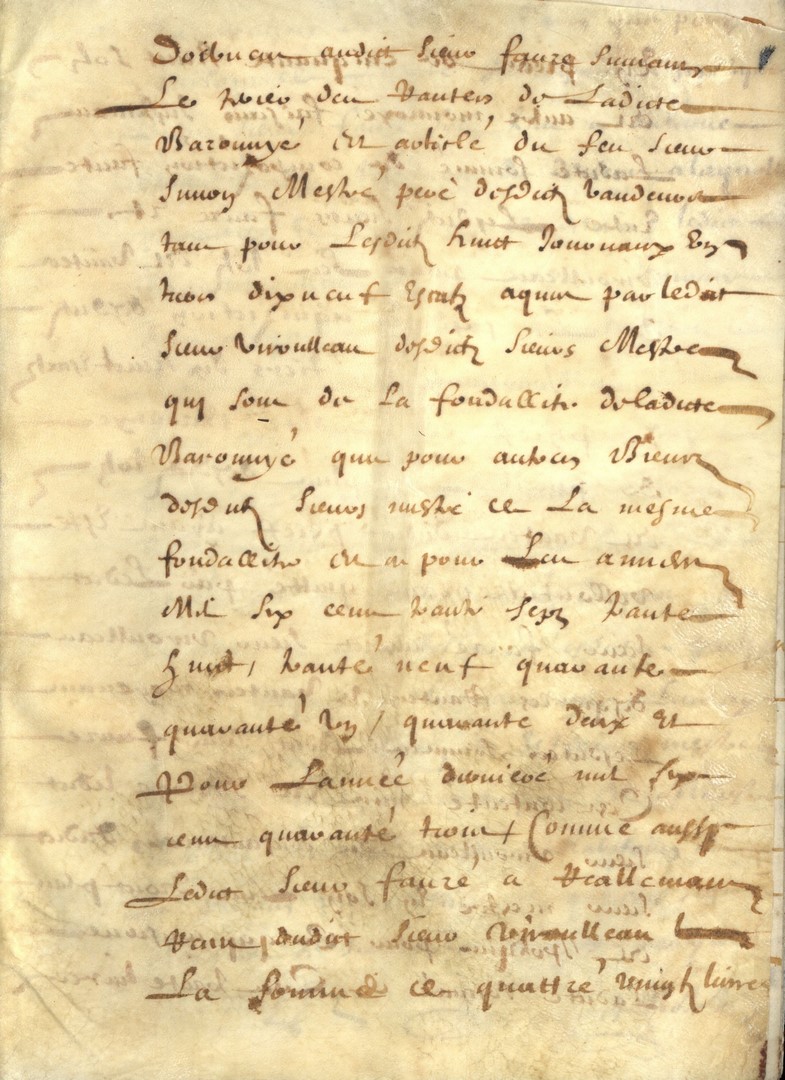 audict sieur faure suivant
Le des de Ladicte
Baronnye Et article du feu sieur
Simon Mestre pere desdictz vandeurs
tant pour Lesdictz huict Journaux Un
tiers dixneuf Escatz aquis par ledict
sieur Viroulleau desdictz sieurs Mestre
quy sont de La fondallite deladicte
Baronnye que pour autres Biens
desdictz sieurs mestre de La mesme
fondallite Et ce pour Les annees
Mil six cent trante sept trante
huict, trante neuf quarante
quarante Un / quarante deux Et
Pour Lannee derniere mil six
cent quarante trois / Comme aussy
Ledict sieur faure a reallemant
dudict sieur Viroulleau
La somme de quattre vingtz livres